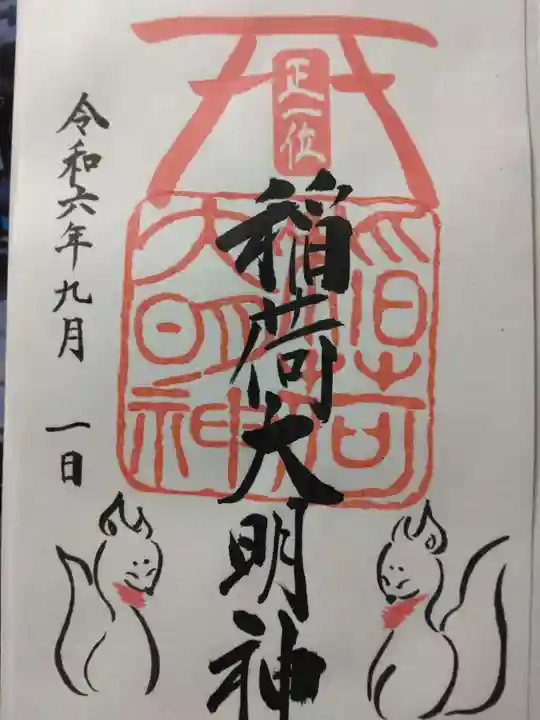 正一位
稲荷大明神
稲荷
大明神
令和六年九月 一日